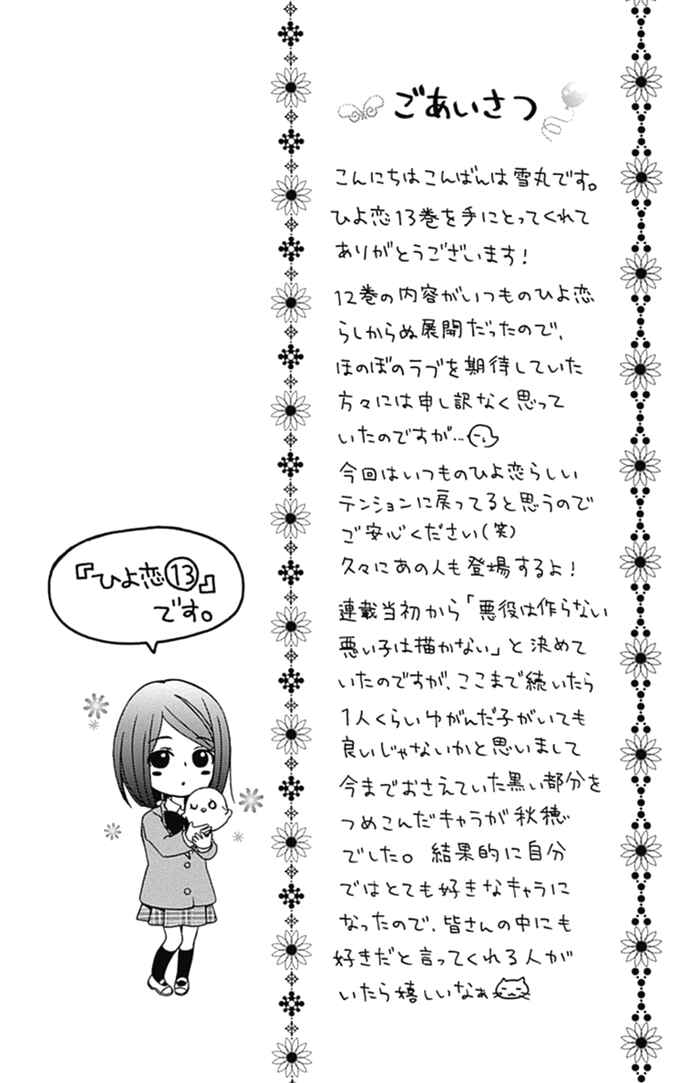 ごあいさつ
こんにちはこんばんは雪丸です。
ひよ恋13巻を手にとってくれて
ありがとうございます!
12巻の内容がいつものひよ恋
らしからぬ展開だったので、
ほのぼのラブを期待していた
方々には申し訳なく思って
いたのですが…
今回はいつものひよ恋らしい
テンションに戻ってると思うので
ご安心ください(笑)
久々にあの人も登場するよ!
連載当初から「悪役は作らない
悪い子は描かない」と決めて
いたのですが、ここまで続いたら
1人くらいゆがんだ子がいても
良いじゃないかと思いまして
今までおさえていた黒い部分を
つめこんだキャラが秋穂
でした。結果的に自分
ではとても好きなキャラに
なったので、皆さんの中にも
好きだと言ってくれる人が
いたら嬉しいなぁ
『ひよ恋⑬』
です。